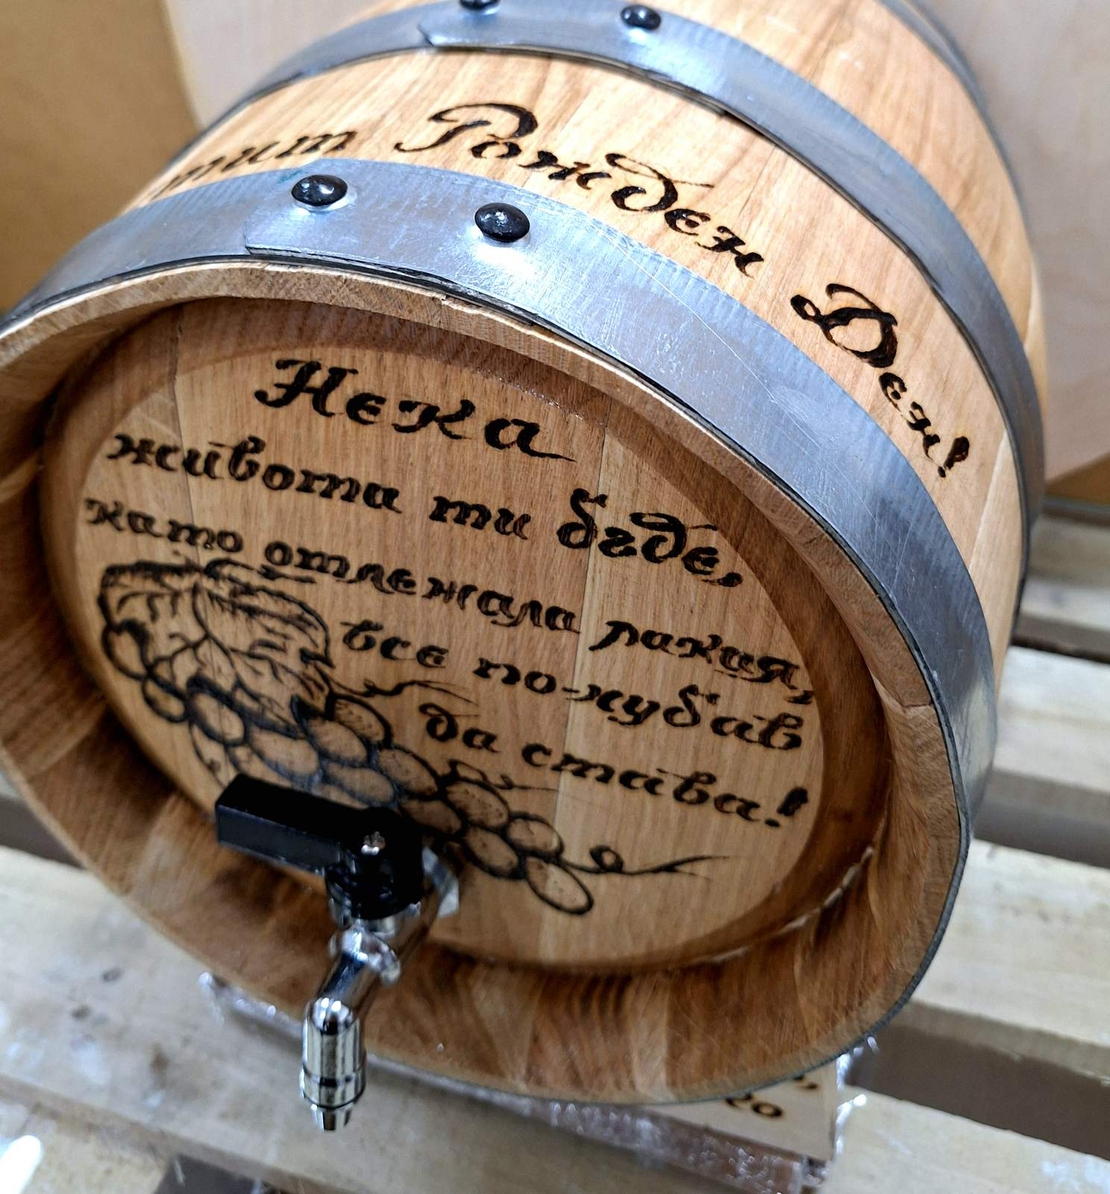 тит Рожден Ден!
Нека
живота ти бъде,
като отлежала ракия,
все по-хубав
да става!